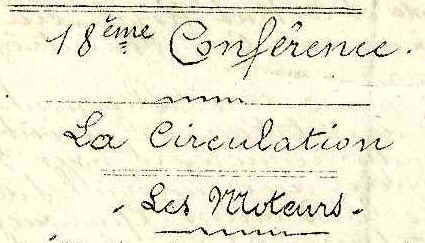 18ème Conférence.
La Circulation
- Les Moteurs -